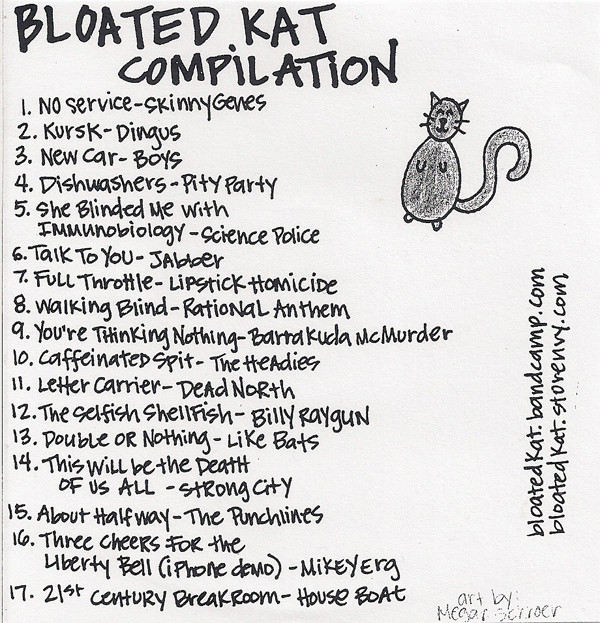 BLOATED KAT
COMPILATION
1. No Service-Skinny Genes
2. Kursk-Dingus
3. New Car-Boys
4. Dishwashers-Pity Party
5. She Blinded Me with
Immunobiology-Science Police
6. Talk To You-Jabber
7. Full Throttle-Lipstick Homicide
8. Walking Blind-Rational Anthem
9. You're Thinking Nothing-Barrakuda McMurder
10. Caffeinated Spit-The Headies
11. Letter Carrier-Dead North
12. The Selfish Shellfish-Billy Raygun
13. Double or Nothing-Like Bats
14. This Will be the Death
of us All -Strong City
15. About Halfway-The Punchlines
16. Three Cheers for the
Liberty Bell (iPhone demo)-Mikey Erg
17. 21st Century Breakroom-House Boat
bloatedkat.bandcamp.com
bloatedkat.storenvy.com
art by: